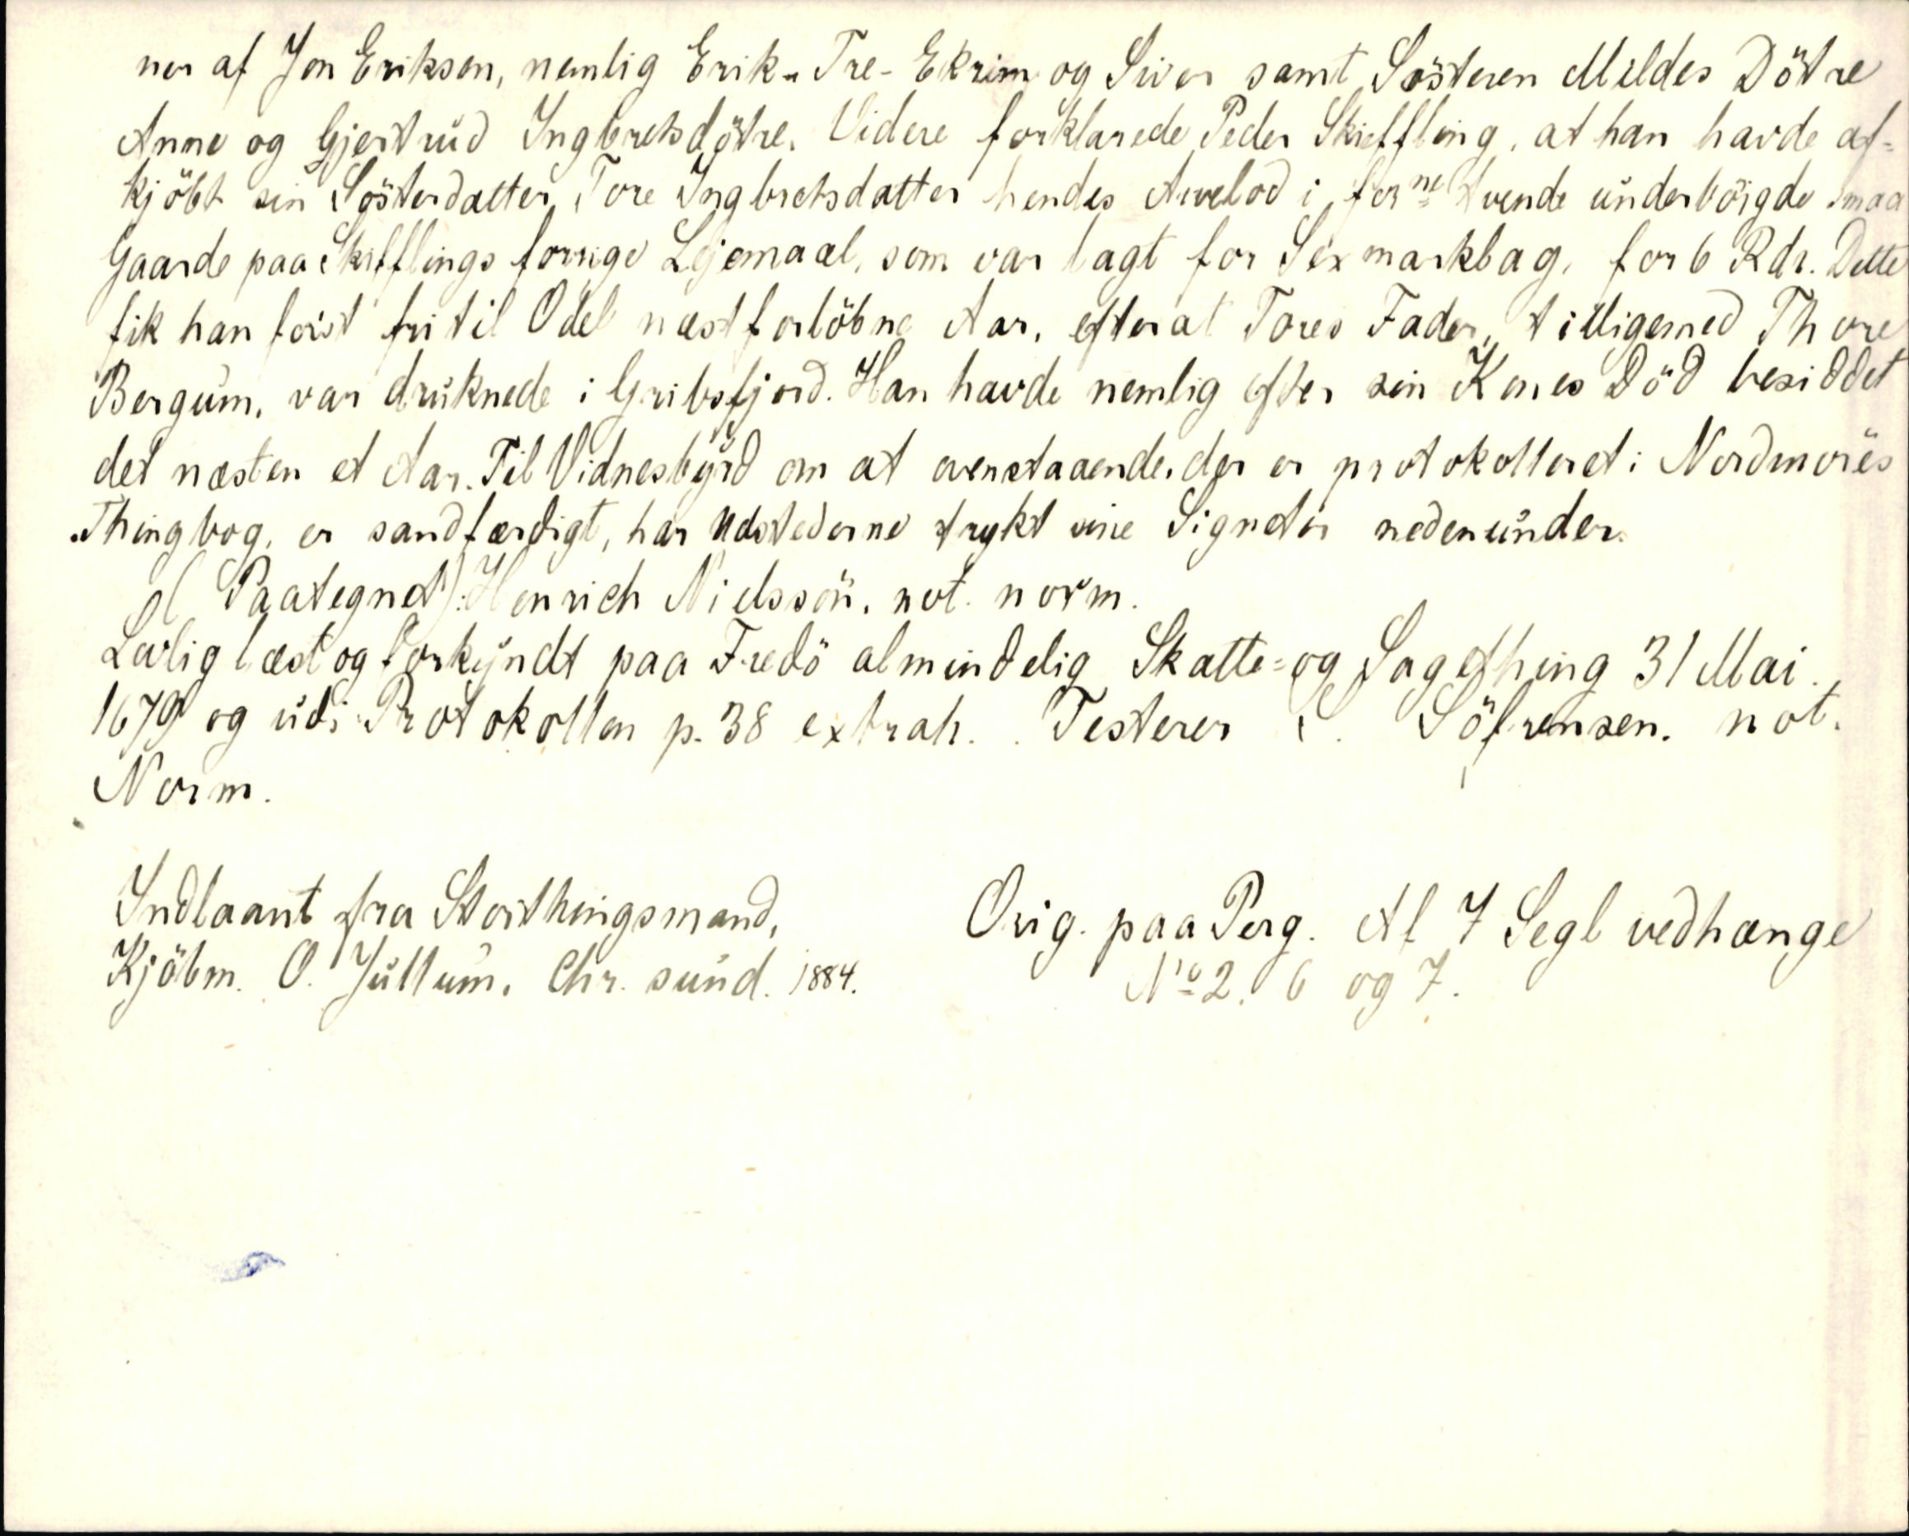 ner af Jon Eriksen, nemlig Erik - Tre - Ekrim og Siver samt Sösteren Mildes Dötre
Anne og Gjertrud Ingbretsdötre. Videre forklarede Peder Skieffling, at han havde af-
kjöbt sin Sösterdatter, Tore Ingbretsdatter hendes Arvelod i forne tvende underböigde smaa
Gaarde paa Skifflings forrige Lejemaal, som var lagt for Sex markbag, for 6 Rdr. Dette
fik han först fri til Odel næstforlöbne Aar, efterat Tores Fader, tilligemed Thore
Bergum, var druknede i Gribsfjord. Han havde nemlig efter sin Kones Död besiddet
det næsten et Aar. Til Vidnesbyrd om at ovenstaaende, der er protokolleret i Nordmörës
Thingbog, er sandfærdigt, har Udstederne trykt sine Signeter nedenunder.
(Paategnet): Henrich Nielssön, not. norm.
Lovlig læst og forkyndt paa Fredö almindelig Skatte- og Sagething 31 Mai.
1679 og udi Protokollen p. 38 extrah. Testerer S. Söfrensen. not.
Norm.
Indlaant fra Storthingsmand,
Kjöbm. O. Jullum, Chr. sund. 1884.
Orig. paa Perg. Af 7 Segl vedhænge
No 2. 6 og 7.